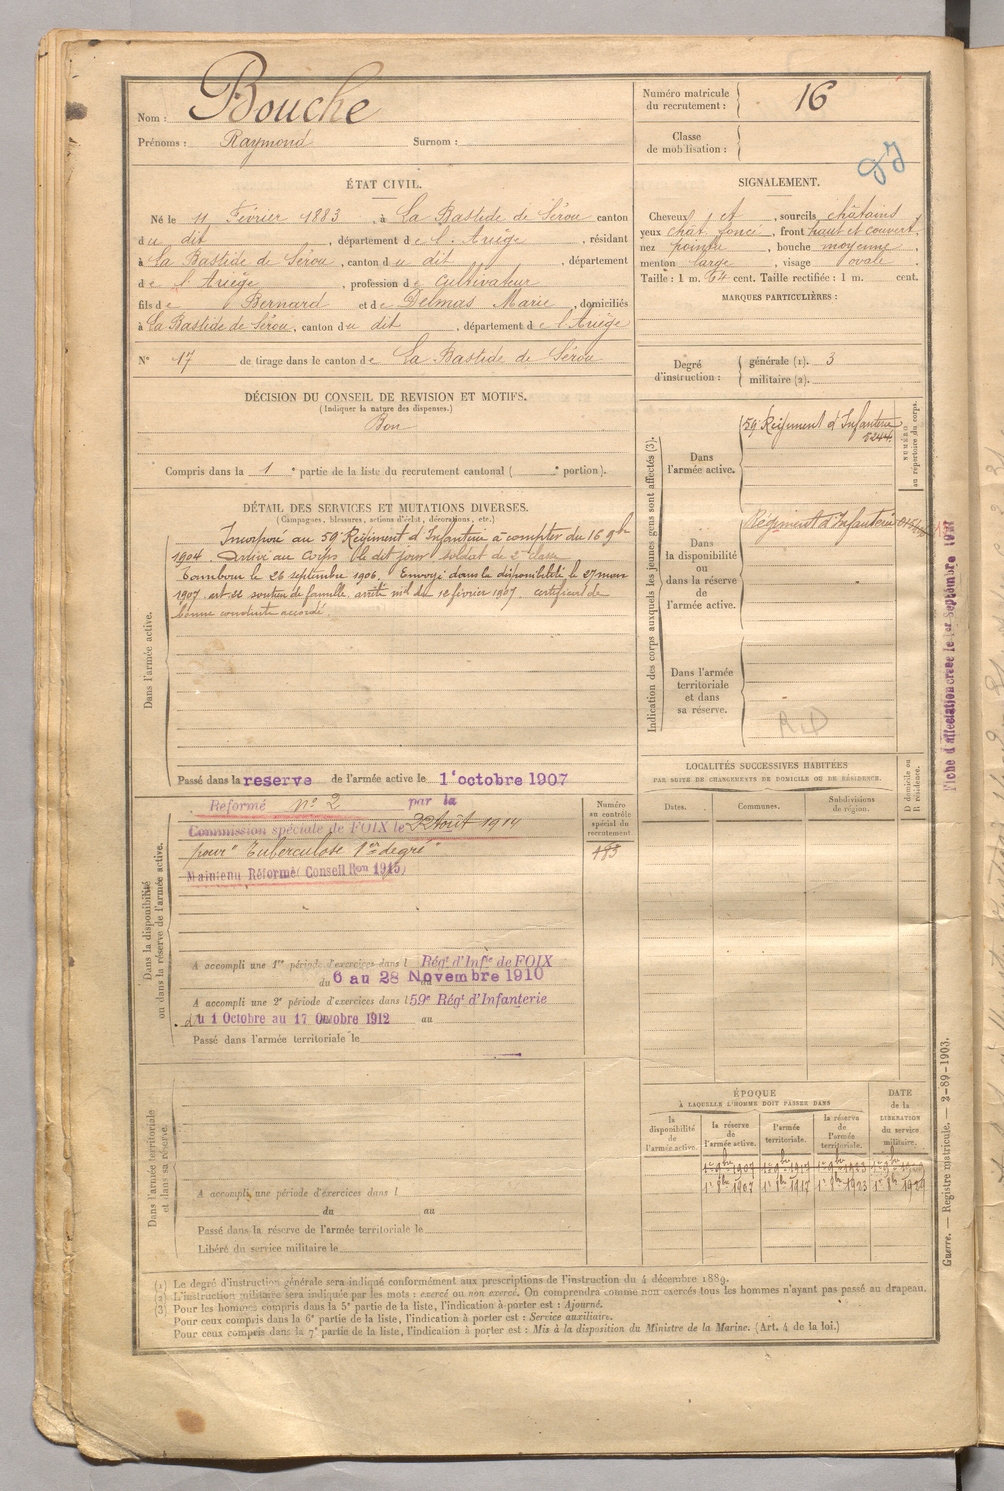 Nom : Bouche
Prénoms : Raymond Surnom :
Numéro matricule
du recrutement : 16
Classe
de mobilisation :
ÉTAT CIVIL.
Né le 11 Février 1883, à La Bastide de Sérou canton
du dit, département de l'Ariège, résidant
à La Bastide de Sérou, canton du dit, département
de l'Ariège, profession de Cultivateur
fils de Bernard et de Delmas Marie, domiciliés
à La Bastide de Sérou, canton du dit, département de l'Ariège
N° 17 de tirage dans le canton de La Bastide de Sérou
SIGNALEMENT.
Cheveux et, sourcils châtains
yeux chât. foncé, front haut et couvert,
nez pointu, bouche moyenne,
menton large, visage ovale.
Taille : 1 m. 64 cent. Taille rectifiée : 1 m. cent.
MARQUES PARTICULIÈRES :
Degré
d'instruction :
générale (1). 3
militaire (2).
DÉCISION DU CONSEIL DE REVISION ET MOTIFS.
(Indiquer la nature des dispenses.)
Bon
Compris dans la 1e partie de la liste du recrutement cantonal ( e portion).
DÉTAIL DES SERVICES ET MUTATIONS DIVERSES.
(Campagnes, blessures, actions d'éclat, décorations, etc.)
Dans l'armée active.
Incorporé au 59 Régiment d'Infanterie à compter du 16 9bre
1904. Arrivé au Corps le dit jour soldat de 2e classe
Tambour le 26 septembre 1906. Envoyé dans la disponibilité le 27 mars
1907 soutien de famille, arrêté mel du 12 février 1907. certificat de
bonne conduite accordé.
Passé dans la reserve de l'armée active le 1er octobre 1907
Indication des corps auxquels les jeunes gens sont affectés (3).
Dans
l'armée active.
59 Régiment d'Infanterie
5244
NUMÉRO
au répertoire du corps.
Dans
la disponibilité
ou
dans la réserve
de
l'armée active.
Régiment d'Infanterie
Dans l'armée
territoriale
et dans
sa réserve.
RD
Fiche d'affectation créée le 1er Septembre
LOCALITÉS SUCCESSIVES HABITÉES
PAR SUITE DE CHANGEMENTS DE DOMICILE OU DE RÉSIDENCE.
Dates.
Communes.
Subdivisions
de région.
D domicile ou
R résidence.
Dans la disponibilité
ou dans la réserve de l'armée active.
Numéro
au contrôle
spécial du
recrutement
Reformé n° 2 par la
Commission spéciale de FOIX le Août 1914
pour "Tuberculose 1er degré"
Maintenu Réformé Conseil Ron 1915
A accompli une 1re période d'exercices dans l Régt d'Infie de FOIX
du 6 au 28 Novembre 1910
A accompli une 2e période d'exercices dans l 59e Régt d'Infanterie
du 1 Octobre au 17 Octobre 1912 au
Passé dans l'armée territoriale le
Dans l'armée territoriale
et dans sa réserve.
A accompli une période d'exercices dans l
du au
Passé dans la réserve de l'armée territoriale le
Libéré du service militaire le
ÉPOQUE
À LAQUELLE L'HOMME DOIT PASSER DANS
la
disponibilité
de
l'armée active.
la réserve
de
l'armée active.
l'armée
territoriale.
la réserve
de
l'armée
territoriale.
DATE
de la
LIBÉRATION
du service
militaire.
1er 8bre 1907 1er 8bre 1917 1er 8bre 1923 1er 8bre 1929
Guerre. — Registre matricule. — 2-89-1903.
(1) Le degré d'instruction générale sera indiqué conformément aux prescriptions de l'instruction du 4 décembre 1889.
(2) L'instruction militaire sera indiquée par les mots : exercé ou non exercé. On comprendra comme non exercés tous les hommes n'ayant pas passé au drapeau.
(3) Pour les hommes compris dans la 5e partie de la liste, l'indication à porter est : Ajourné.
Pour ceux compris dans la 6e partie de la liste, l'indication à porter est : Service auxiliaire.
Pour ceux compris dans la 7e partie de la liste, l'indication à porter est : Mis à la disposition du Ministre de la Marine. (Art. 4 de la loi.)